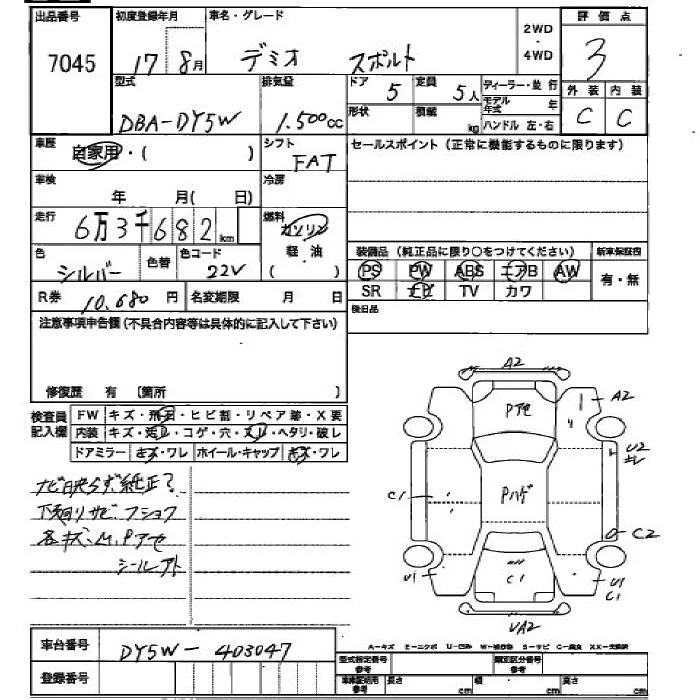 出品番号 初度登録年月 車名・グレード 2WD ・ 4WD 評価点
7045 17 8月 デミオ スポルト 3
型式 排気量 ドア 5 定員 5人 ディーラー・並行 外装 内装
DBA-DY5W 1.500cc 形状 積載 kg モデル年式 年 ハンドル 左・右 C C
車歴 自家用・( ) シフト FAT セールスポイント (正常に機能するものに限ります)
車検 年 月( 日) 冷房
走行 6万3千682km 燃料 ガソリン 軽油 ( )
色 シルバー 色替 色コード 22V 装備品 (純正品に限り○をつけてください) 新車保証書
PS PW ABS エアB AW 有・無
R券 10.680円 名変期限 月 日 SR ナビ TV カワ
注意事項申告欄 (不具合内容等は具体的に記入して下さい) 後日品
修復歴 有 〔箇所 〕
検査員記入欄 FW キズ・飛石・ヒビ割・リペア跡・X要
内装 キズ・汚レ・コゲ・穴・スレ・ヘタリ・破レ
ドアミラー キズ・ワレ ホイール・キャップ キズ・ワレ
ナビ映らず純正?
下廻りサビ・フショク
各キズ・M.Pアセ
シールアト
A2
A2
Pアセ
U2
キレ
C1
Pハゲ
C2
U1
C1
U1
C1
UA2
車台番号 DY5W-403047
登録番号
A-キズ E-エクボ U-凹み W-補修跡 S-サビ C-腐食 XX-交換済
型式指定番号 参考 類別区分番号 参考
車庫証明用 参考 長さ cm 幅 cm 高さ cm